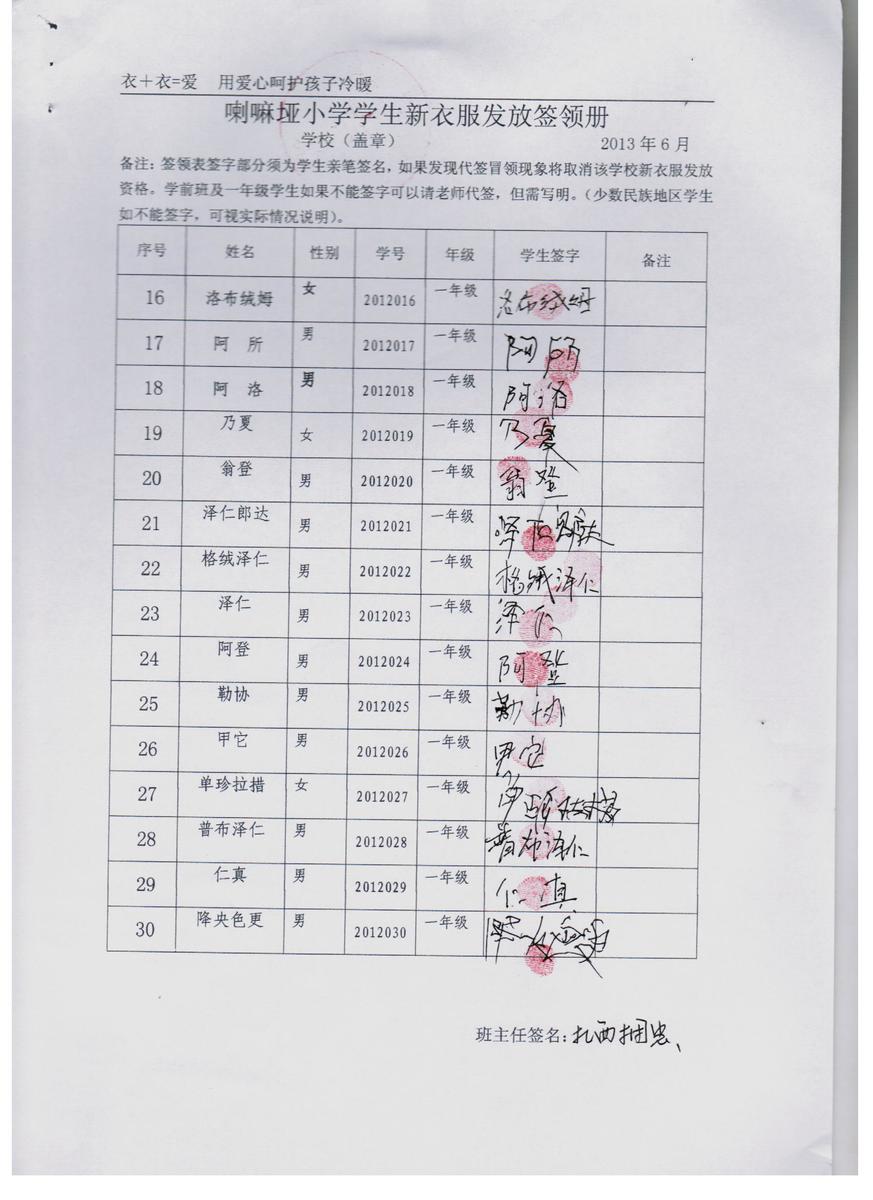 衣＋衣=爱 用爱心呵护孩子冷暖
喇嘛垭小学学生新衣服发放签领册
学校（盖章） 2013 年 6 月
备注：签领表签字部分须为学生亲笔签名，如果发现代签冒领现象将取消该学校新衣服发放
资格。学前班及一年级学生如果不能签字可以请老师代签，但需写明。（少数民族地区学生
如不能签字，可视实际情况说明）。
序号 姓名 性别 学号 年级 学生签字 备注
16 洛布绒姆 女 2012016 一年级 洛布绒姆
17 阿 所 男 2012017 一年级 阿所
18 阿 洛 男 2012018 一年级 阿洛
19 乃夏 女 2012019 一年级 乃夏
20 翁登 男 2012020 一年级 翁登
21 泽仁郎达 男 2012021 一年级 泽仁郎达
22 格绒泽仁 男 2012022 一年级 格绒泽仁
23 泽仁 男 2012023 一年级 泽仁
24 阿登 男 2012024 一年级 阿登
25 勒协 男 2012025 一年级 勒协
26 甲它 男 2012026 一年级 甲它
27 单珍拉措 女 2012027 一年级 单珍拉措
28 普布泽仁 男 2012028 一年级 普布泽仁
29 仁真 男 2012029 一年级 仁真
30 降央色更 男 2012030 一年级 降央色更
班主任签名：扎西拥忠